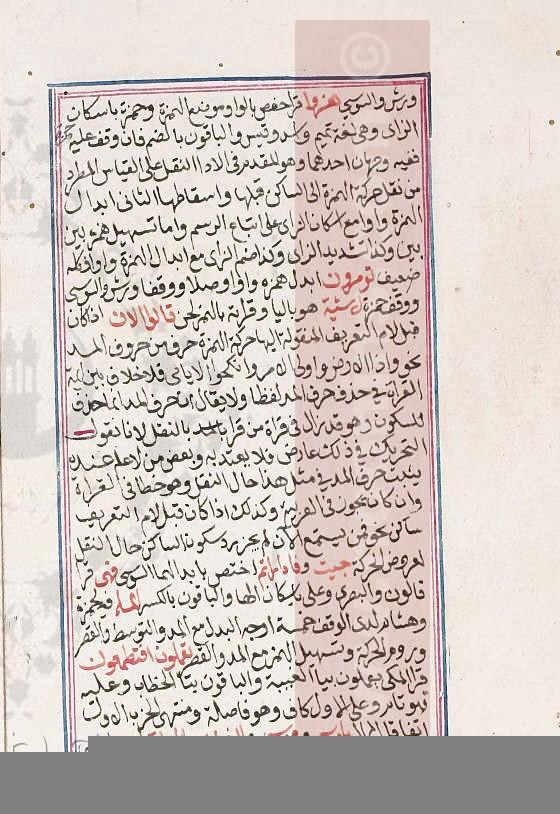 ورش والسوسي هزوا قرا حفص بالواو موضع الهمزة وحمزة باسكان
الزاي وهي لغة تميم واسد وقيس والباقون بالضم فان وقف عليه حمزة
ففيه وجهان احدهما وهو المقدم في الادا النقل على القياس المطرد
من نقل حركة الهمزة الى الساكن قبلها واسقاطها الثاني ابدال
الهمزة واوا مع اسكان الزاي على اتباع الرسم واما تسهيل همزه بين
بين وكذا تشديد الزاي وكذا ضم الزاي مع ابدال الهمزة واوا فكله
ضعيف تومرون ابدل همزه واوا وصلا ووقفا ورش والسوسي
ووقف حمزة لاشية هو باليا وقرانه بالهمز لحن قالوا الان اذا كان
قبل لام التعريف المنقولة اليها حركة الهمزة حرف من حروف المد
نحو واذا الارض واولي الامر وانكحوا الايامى فلا خلاف بين ايمة
القراة في حذف حرف المد لفظا ولا يقال ان حرف المد انما حذف
للسكون وهو قد زال في قراة من قرا بالنقل لانا نقول
التحريك في ذلك عارض فلا يعتد به وبعض من لا علم عنده
يثبت حرف المد في مثل هذا حال النقل وهو خطا في القراة
وان كان يجوز في العربية وكذلك اذا كان قبل لام التعريف
ساكن نحو فمن يستمع الان لم يجز رد سكون الساكن حال النقل
لعروض الحركة جيت وفاداراتم اختص بابدالهما السوسي فهي قرا
قالون والبصري وعلي باسكان الها والباقون بالكسر الماء فيه لحمزة
وهشام لدى الوقف خمسة اوجه البدل مع المد والتوسط والقصر
وروم الحركة وتسهيل الهمز مع المد والقصر تعملون افتطمعون
قرا المكي يعملون بيا الغيبة والباقون بتا الخطاب وعليه
فهو تام وعلى الاول كاف وهو فاصلة ومنتهى الحزب الاول
اتفاقا